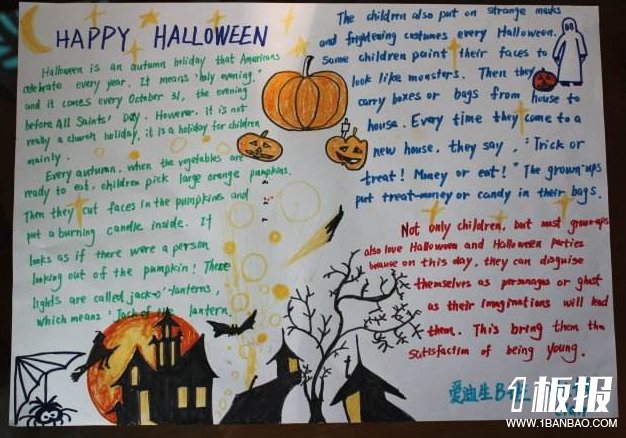 HAPPY HALLOWEEN
Halloween is an autumn holiday that Americans
celebrate every year. It means "holy evening,"
and it comes every October 31, the evening
before All Saints' Day. However, it is not
really a church holiday, it is a holiday for children
mainly.
Every autumn, when the vegetables are
ready to eat, children pick large orange pumpkins.
Then they cut faces in the pumpkins and
put a burning candle inside. It
looks as if there were a person
looking out of the pumpkin! These
lights are called jack-o'-lanterns,
which means "Jack of the lantern.
The children also put on strange masks
and frightening costumes every Halloween.
Some children paint their faces to
look like monsters. Then they
carry boxes or bags from house to
house. Every time they come to a
new house, they say, "Trick or
treat! Money or eat!" The grown-ups
put treat-money or candy in their bags.
Not only children, but most grown-ups
also love Halloween and Halloween parties
because on this day, they can disguise
themselves as personages or ghost
as their imaginations will lead
them. This bring them the
satisfaction of being young.
爱迪生B班
1板报
WWW.1BANBAO.COM